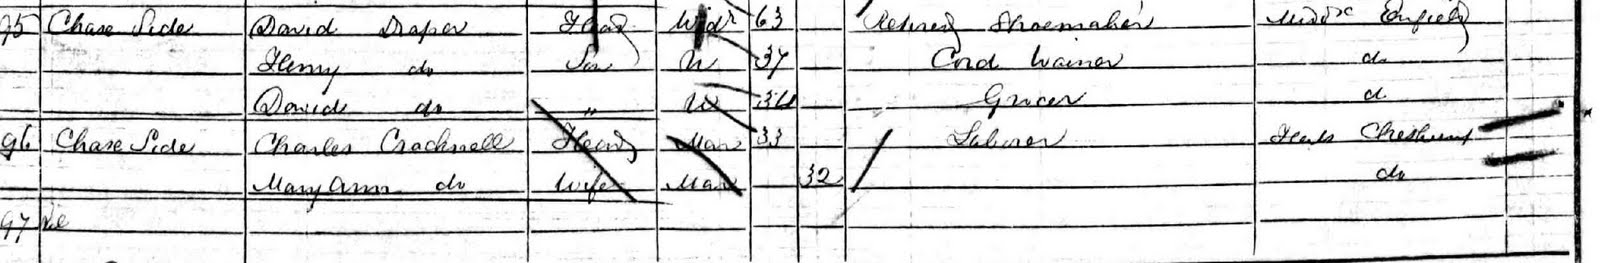 95 Chase Side David Draper Head Widr 63 Retired Shoemaker Middx Enfield
Henry do Son U 37 Cord Wainer do
David do " U 34 Grocer d
96 Chase Side Charles Cracknell Head Mar 33 Laborer Herts Cheshunt
Mary Ann do Wife Mar 32 do
97